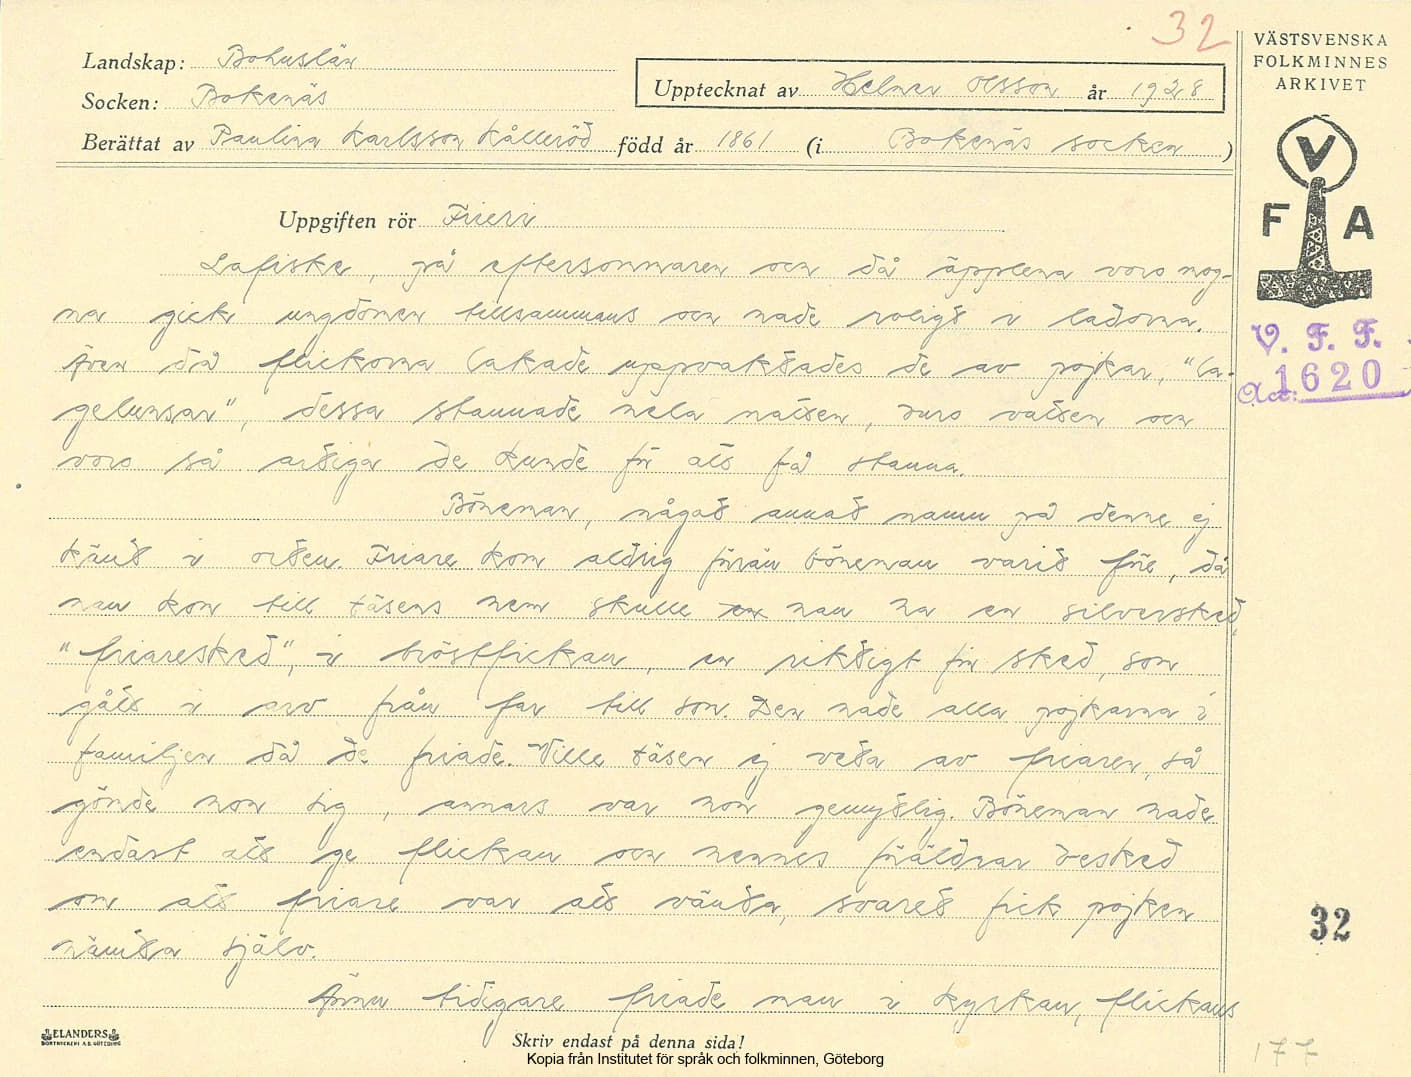 32
VÄSTSVENSKA
FOLKMINNES
ARKIVET
Landskap: Bohuslän
Socken: Bokenäs
Upptecknat av Helmer Olsson år 1928
Berättat av Paulina Karlsson Kålleröd född år 1861 (i Bokenäs socken)
V
F A
Uppgiften rör Frieri
Lafiske, på eftersommaren och då äpplena voro mog-
na gick ungdomen tillsammans och hade roligt i ladorna.
Även då flickorna lakade uppvaktades de av pojkar, "la-
gelunsar", dessa stannade hela natten, vaksen och
voro så artiga de kunde för att få stanna.
V. F. F.
Acc: 1620
Böneman, något annat namn på denne ej
känt i orten. Friare kom aldrig förrän böneman varit före, då
man kom till täsens hem skulle man ha en silversked,
"friaresked", i bröstfickan, en riktigt fin sked, som
gått i arv från far till son. Den hade alla pojkarna i
familjen då de friade. Ville täsen ej veta av friaren, så
gömde hon sig, annars var hon gemytlig. Böneman hade
endast att ge flickan och hennes föräldrar besked
om att friare var att vänta, svaret fick pojken
hämta själv.
Ännu tidigare friade man i kyrkan, flickans
32
ELANDERS
BOKTRYCKERI A.B. GÖTEBORG
Skriv endast på denna sida!
Kopia från Institutet för språk och folkminnen, Göteborg
177